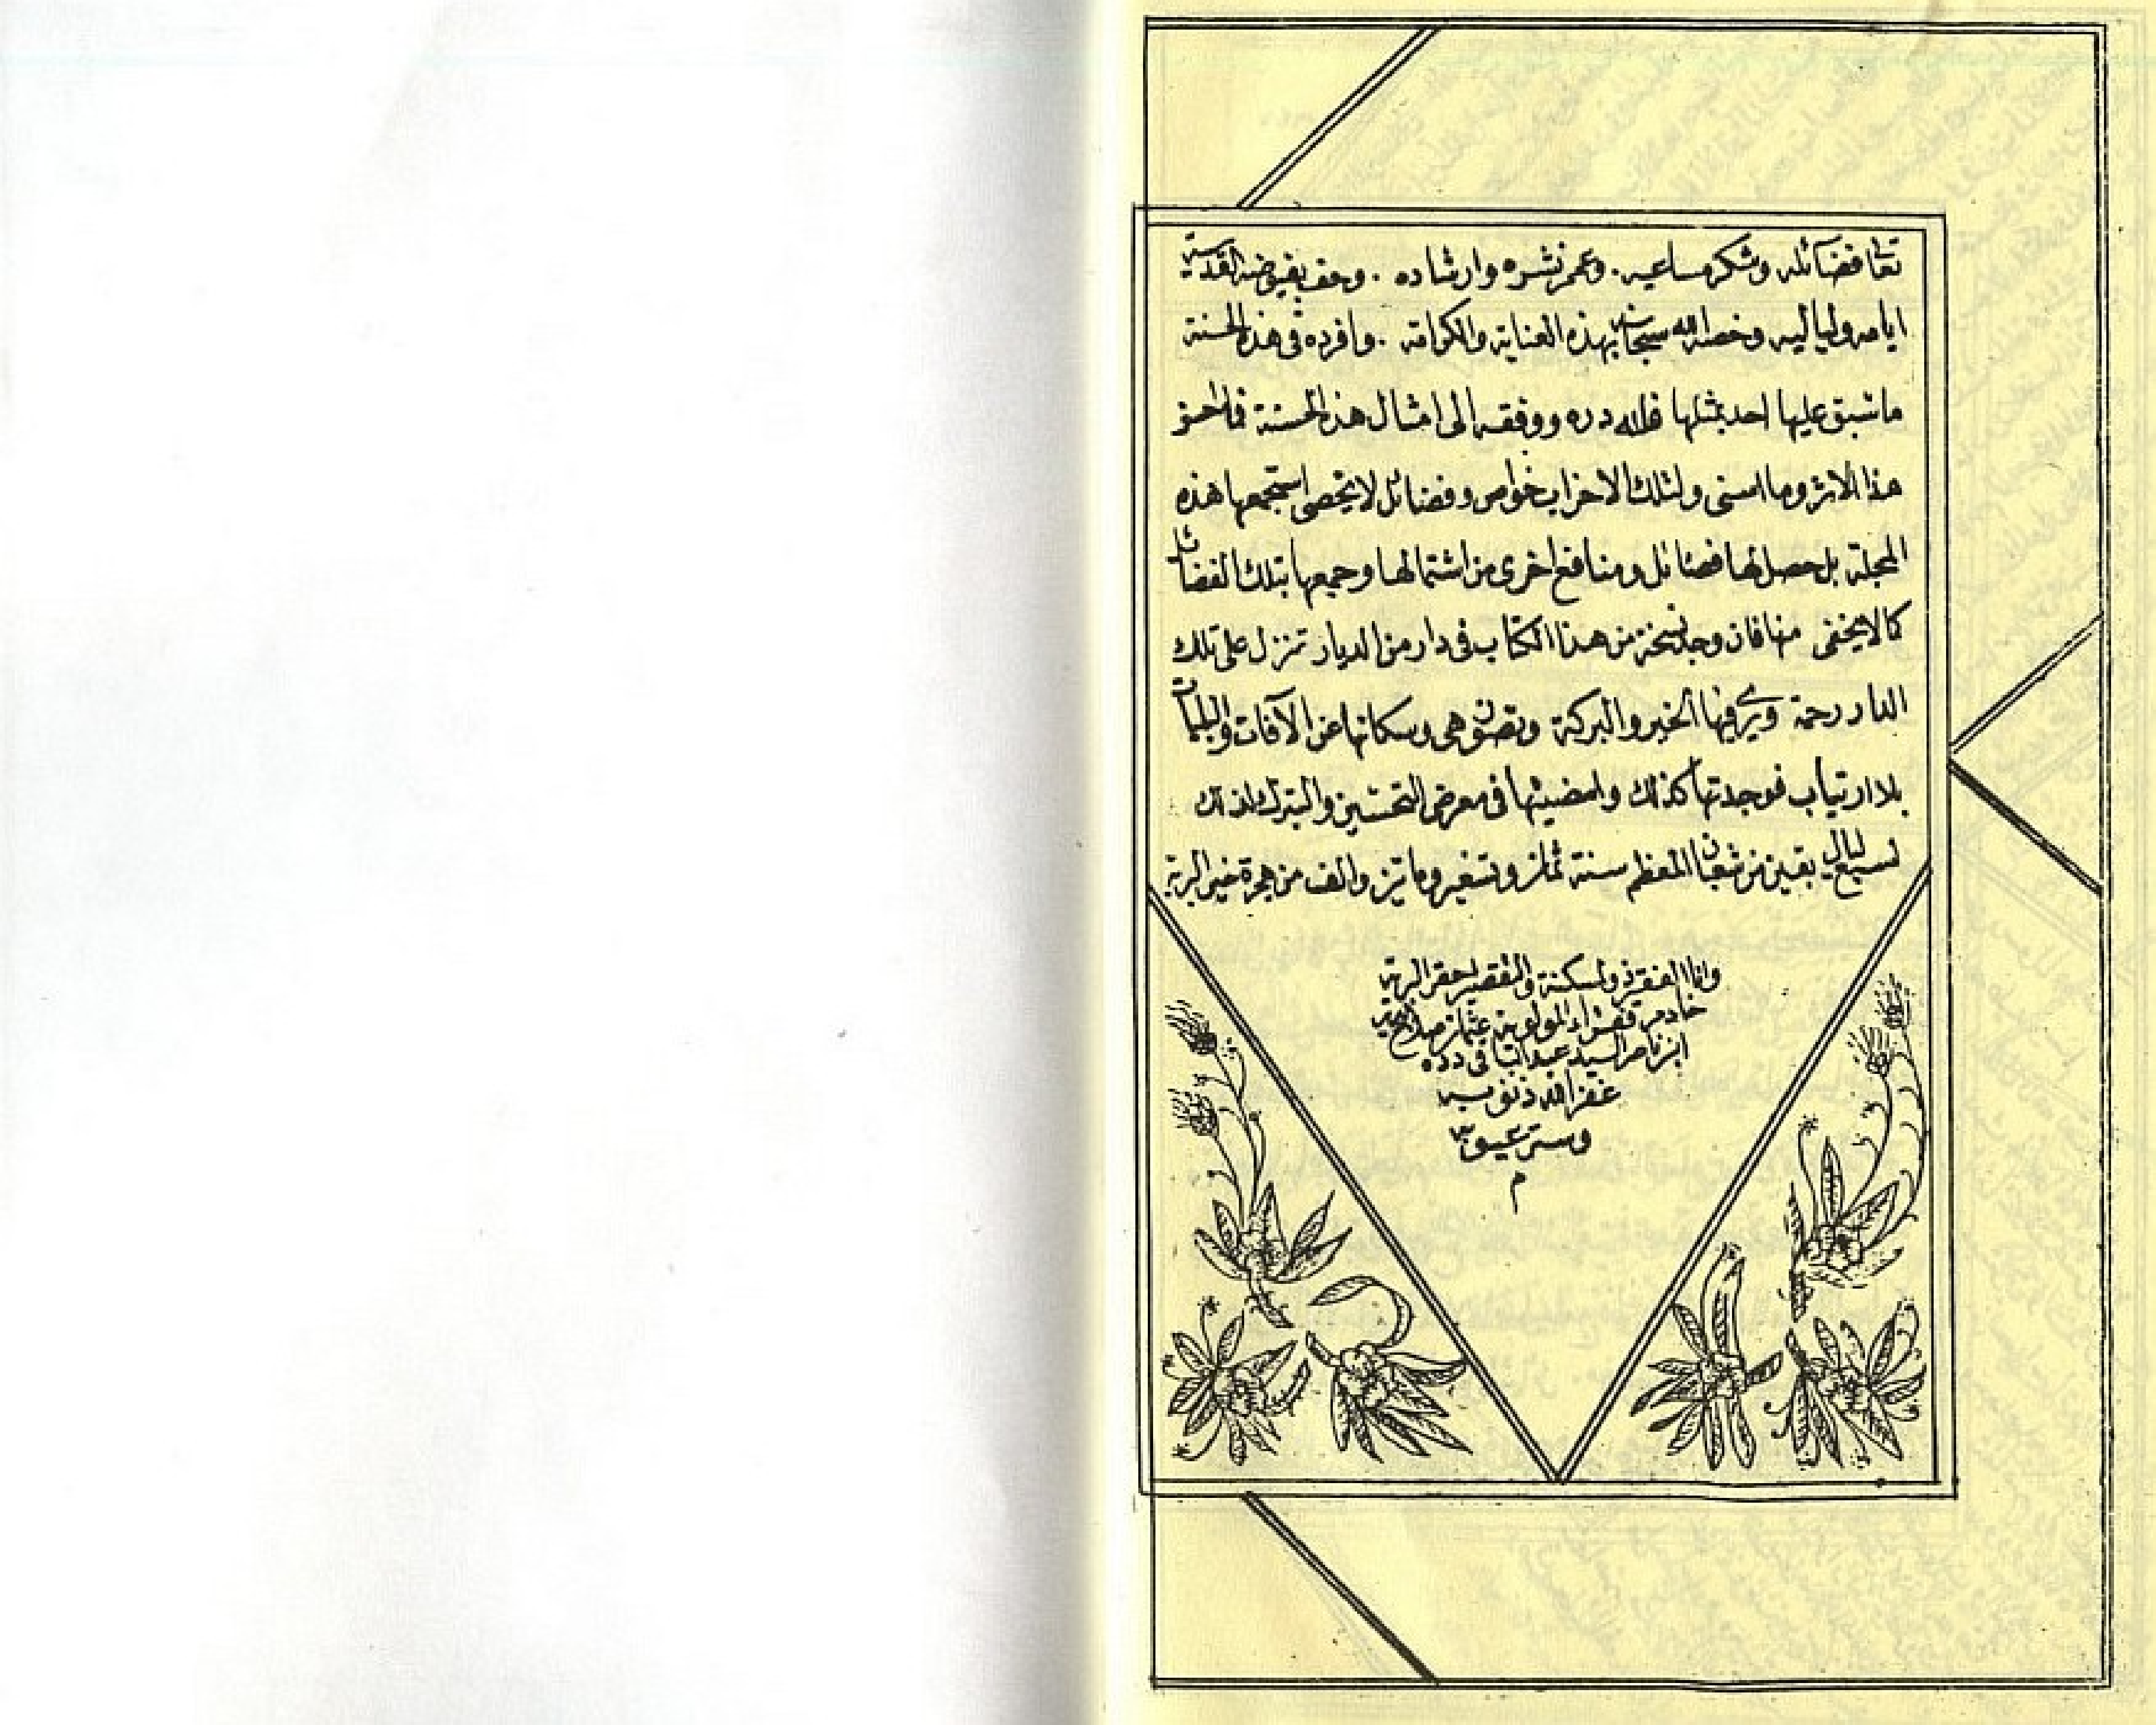 تعا فضائله وشكر مساعيه . وعمر نشره وارشاده . وحف بفيوضه القدسية
ايامه ولياليه وخصه الله سبحانه بهذه العناية والكرامة . وافرده فى هذه الحسنة
ما سبق عليها احد بمثلها فلله دره ووفقه الى امثال هذه الحسنة فما احسن
هذا الاثر وما اسنى ولتلك الاحزاب خواص وفضائل لا يحصى استجمعها هذه
المجلة بل حصل لها فضائل ومنافع اخرى من اشتمالها وجمعها بتلك الفضائل
كما لا يخفى منها فان وجد نسخة من هذا الكتاب فى دار من الديار تنزل على تلك
الدار رحمة ويرى فيها الخير والبركة وتصون هى وسكانها عن الآفات والبليات
بلا ارتياب فوجدتها كذلك وامضيتها فى معرض التحسين والتبرك لذلك
لسبع ليال بقين من شعبان المعظم سنة ثمان وتسعين ومائتين والف من هجرة خير البرية
وانا الفقير ذو المسكنة والتقصير احقر البرية
خادم فقراء المولوية عثمان صلاح الدين
ابن ناصر السيد عبد الباقى دده
غفر الله ذنوبه
وستر عيوبه
م